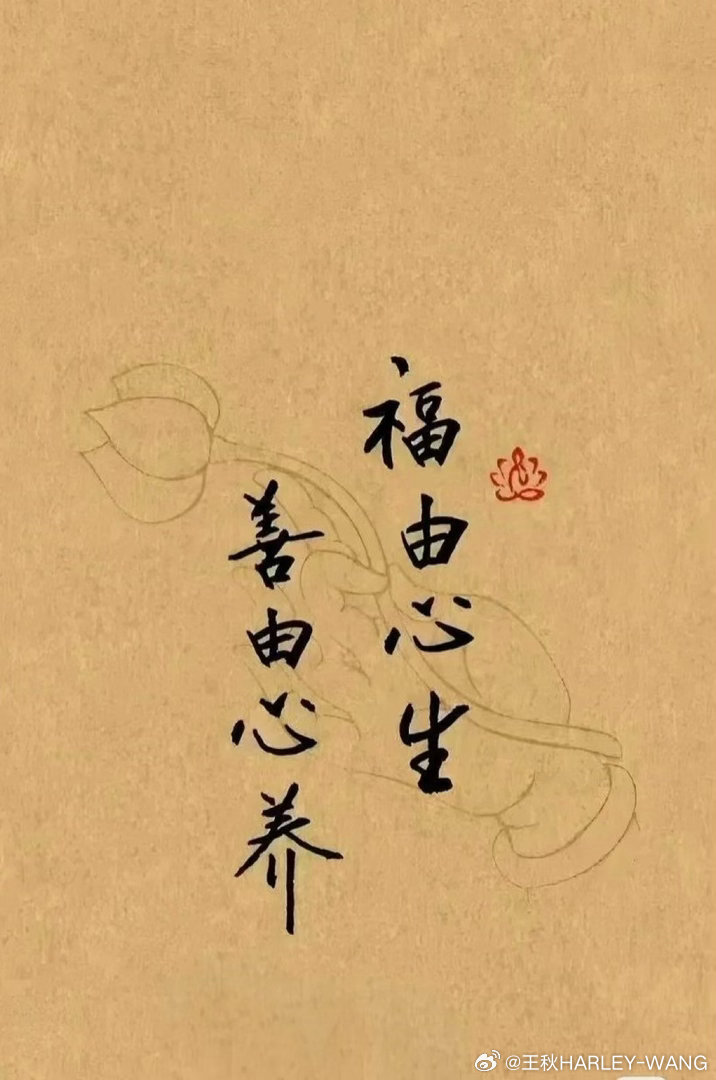 福由心生
善由心养
@王秋HARLEY-WANG